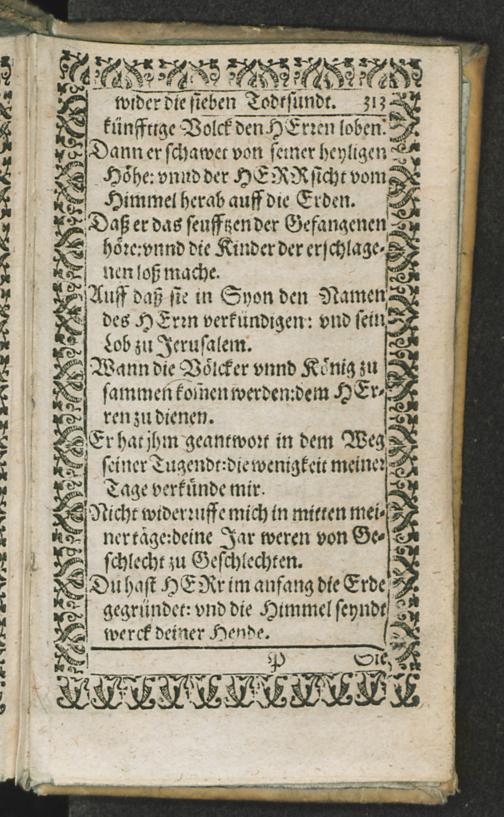 wider die sieben Todtsündt. 313
künfftige Volck den HErren loben.
Dann er schawet von seiner heyligen
Höhe: vnnd der HERR sicht vom
Himmel herab auff die Erden.
Daß er das seufftzen der Gefangenen
höre: vnnd die Kinder der erschlage-
nen loß mache.
Auff daß sie in Syon den Namen
des HErrn verkündigen: vnd sein
Lob zu Jerusalem.
Wann die Völcker vnnd König zu
sammen kom̃en werden: dem HEr-
ren zu dienen.
Er hat jhm geantwort in dem Weg
seiner Tugendt: die wenigkeit meiner
Tage verkünde mir.
Nicht widerruffe mich in mitten mei-
ner täge: deine Jar weren von Ge-
schlecht zu Geschlechten.
Du hast HERr im anfang die Erde
gegründet: vnd die Himmel seyndt
werck deiner Hende.
P Sie